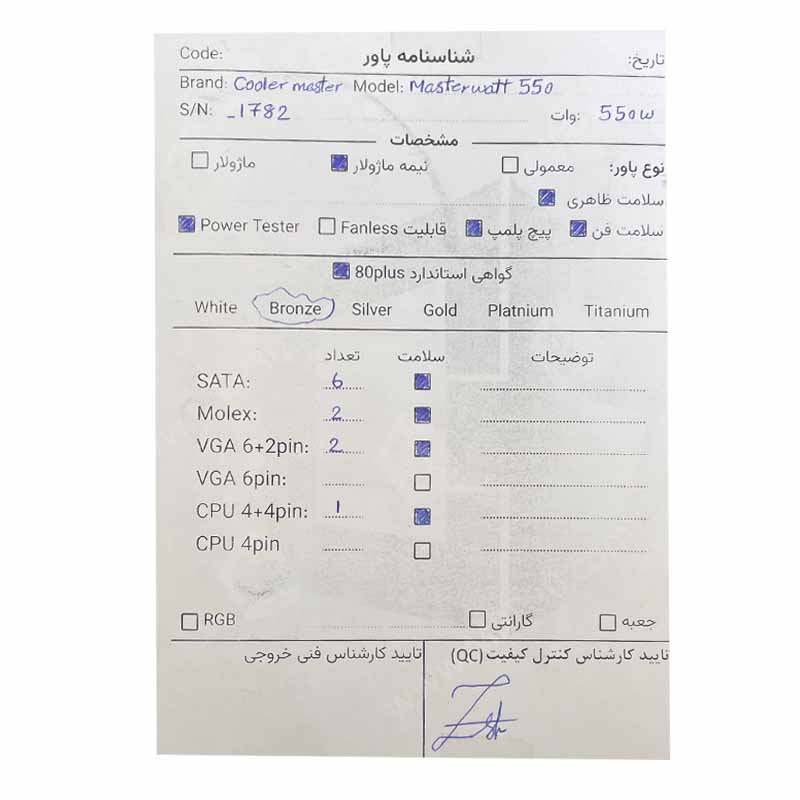 Code: شناسنامه پاور تاریخ:
Brand: Cooler master Model: Masterwatt 550
S/N: _1782 وات: 550w
مشخصات
نوع پاور: معمولی نیمه ماژولار ماژولار
سلامت ظاهری
سلامت فن پیچ پلمپ قابلیت Fanless Power Tester
گواهی استاندارد 80plus
White Bronze Silver Gold Platnium Titanium
تعداد سلامت توضیحات
SATA: 6
Molex: 2
VGA 6+2pin: 2
VGA 6pin:
CPU 4+4pin: 1
CPU 4pin
RGB گارانتی جعبه
تایید کارشناس کنترل کیفیت (QC) تایید کارشناس فنی خروجی